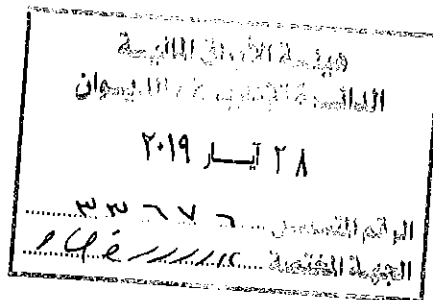 هيئة الأوراق المالية
الدائرة الإدارية / الديوان
٢٨ آيار ٢٠١٩
الرقم المتسلسل ٣٣٦٧٦
الجهة المختصة